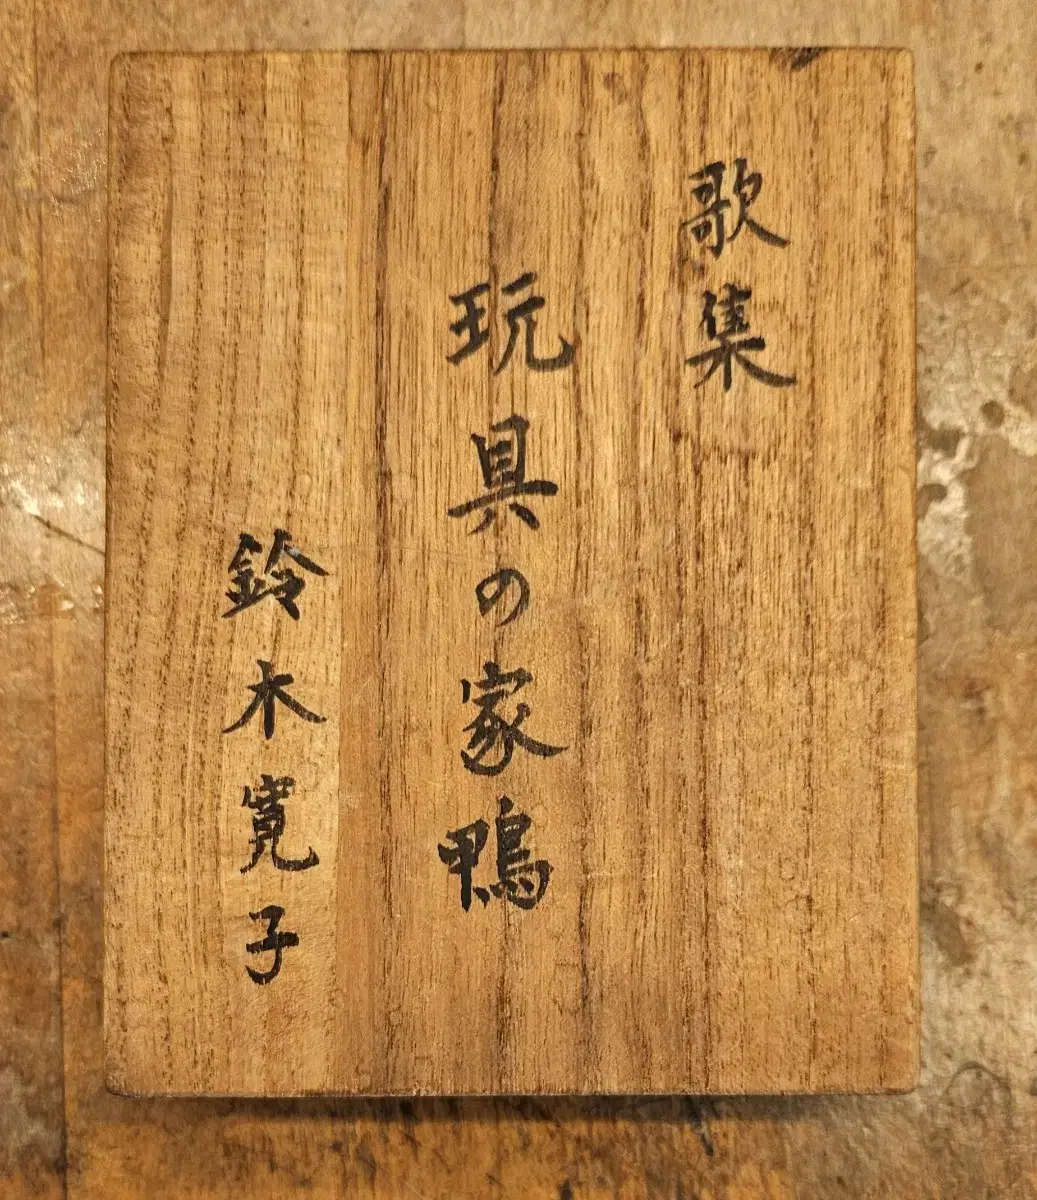 歌集
玩具の家鴨
鈴木寛子